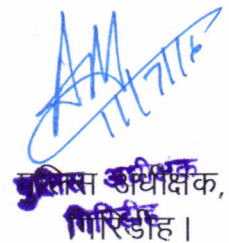 पुलिस अधीक्षक,
गिरिडीह।